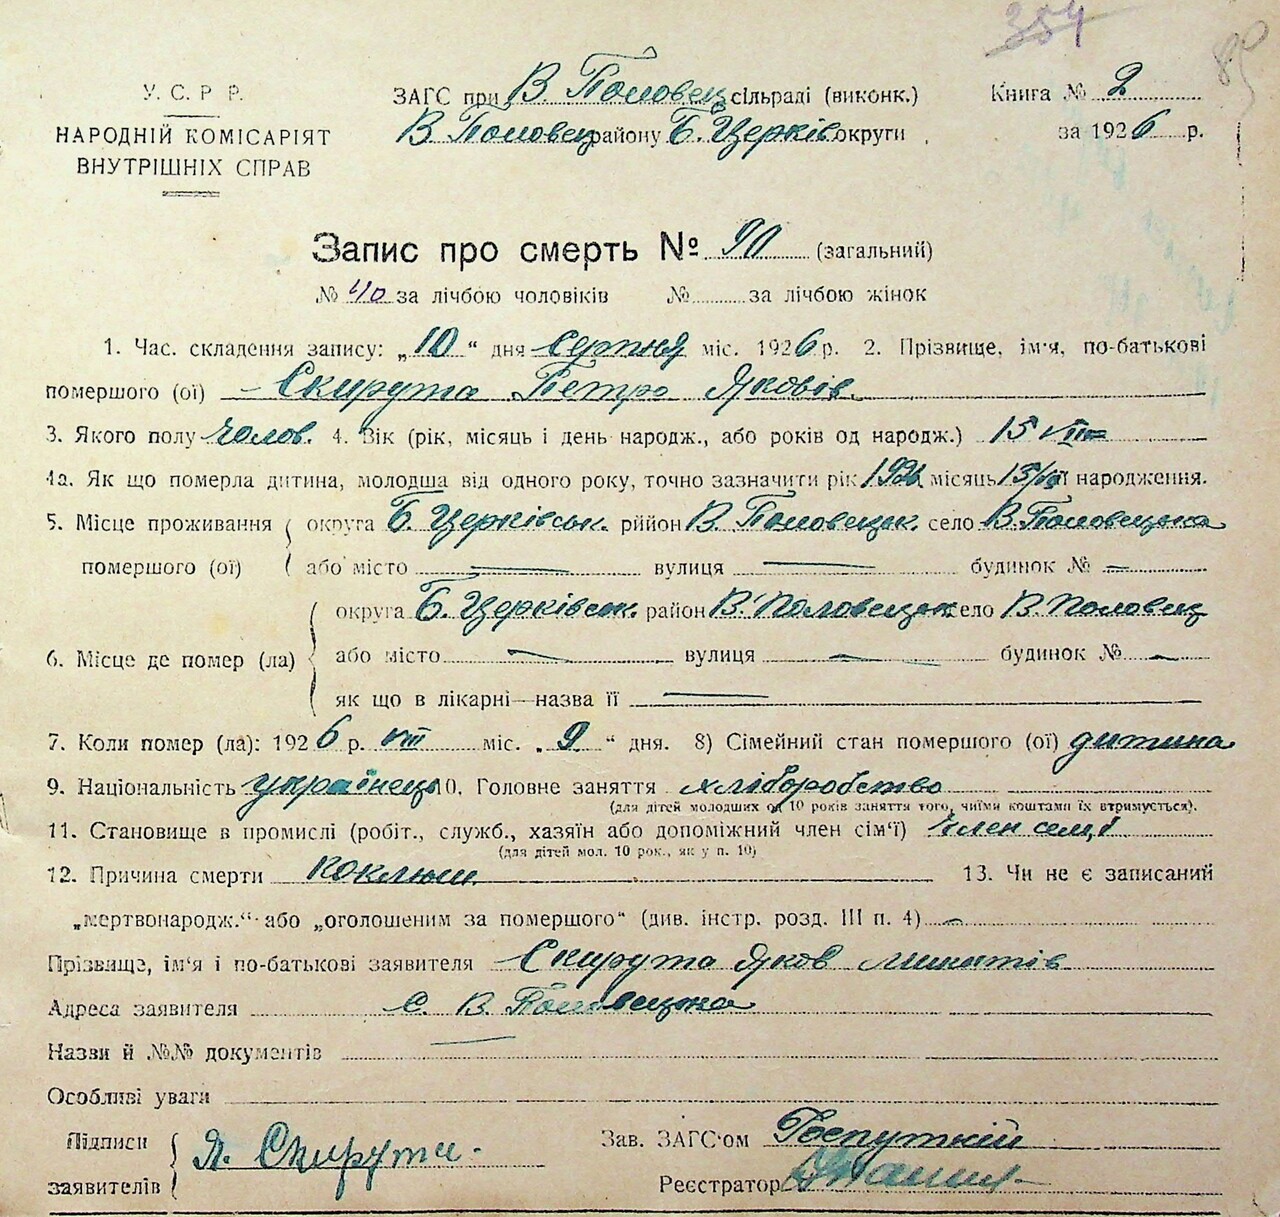 354
89
У. С. Р. Р.
НАРОДНІЙ КОМІСАРІЯТ
ВНУТРІШНІХ СПРАВ
ЗАГС при В. Половец сільраді (виконк.)
В. Половец району Б. Церків округи
Книга № 2
за 1926 р.
Запис про смерть № 90 (загальний)
№ 40 за лічбою чоловіків № за лічбою жінок
1. Час. складення запису: „10“ дня серпня міс. 1926 р. 2. Прізвище, ім'я, по-батькові
помершого (ої) Скирута Петро Яковів
3. Якого полу чолов. 4. Вік (рік, місяць і день народж., або років од народж.) 15 VIII
4а. Як що померла дитина, молодша від одного року, точно зазначити рік місяць народження.
5. Місце проживання округа Б. Церківськ. рийон В. Половецьк. село В. Половецька
помершого (ої) або місто вулиця будинок №
округа Б. Церківськ. район В. Половецьк село В. Половец
6. Місце де помер (ла) або місто вулиця будинок №
як що в лікарні—назва її
7. Коли помер (ла): 1926 р. VIII міс. „9“ дня. 8) Сімейний стан помершого (ої) дитина
9. Національність українець 10. Головне заняття хліборобство
(для дітей молодших од 10 років заняття того, чиїми коштами їх втримується).
11. Становище в промислі (робіт., служб., хазяїн або допоміжний член сім'ї) член семї
(для дітей мол. 10 рок., як у п. 10)
12. Причина смерти коклюш 13. Чи не є записаний
„мертвонародж.“ або „оголошеним за помершого“ (див. інстр. розд. III п. 4)
Прізвище, ім'я і по-батькові заявителя Скирута Яков
Адреса заявителя С. В. Половецька
Назви й №№ документів
Особливі уваги
Підписи
заявителів
Я. Скирута.
Зав. ЗАГС'ом
Реєстратор